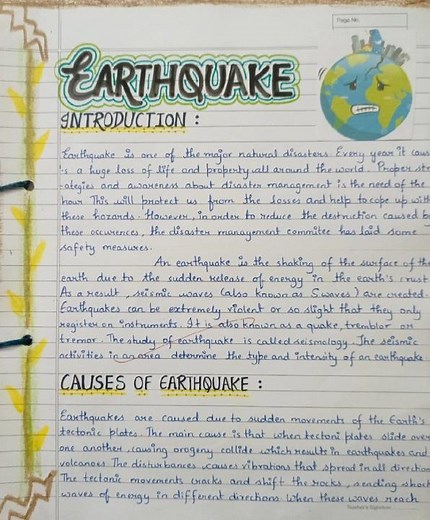 Page No.
EARTHQUAKE
INTRODUCTION :
Earthquake is one of the major natural disasters. Every year it caus
's a huge loss of life and property all around the world. Proper str
-ategies and awareness about disaster management is the need of the
hour. This will protect us from the losses and help to cope up with
these hazards. However, in order to reduce the destruction caused by
these occurences, the disaster management commitee has laid some
safety measures.
An earthquake is the shaking of the surface of the
earth due to the sudden release of energy in the earth's crust.
As a result, seismic waves (also known as S waves) are created.
Earthquakes can be extremely violent or so slight that they only
register on instruments. It is also known as a quake, tremblor or
tremor. The study of earthquake is called seismology. The seismic
activities in an area determine the type and intensity of an earthquake.
CAUSES OF EARTHQUAKE :
Earthquakes are caused due to sudden movements of the Earth's
tectonic plates. The main cause is that when tectoni plates slide over
one another, causing orogeny collide which results in earthquakes and
volcanoes. The disturbances, causes vibrations that spread in all direction
The tectonic movements cracks and shift the rocks, sending shock
waves of energy in different directions. When these waves reach
Teacher's Signature